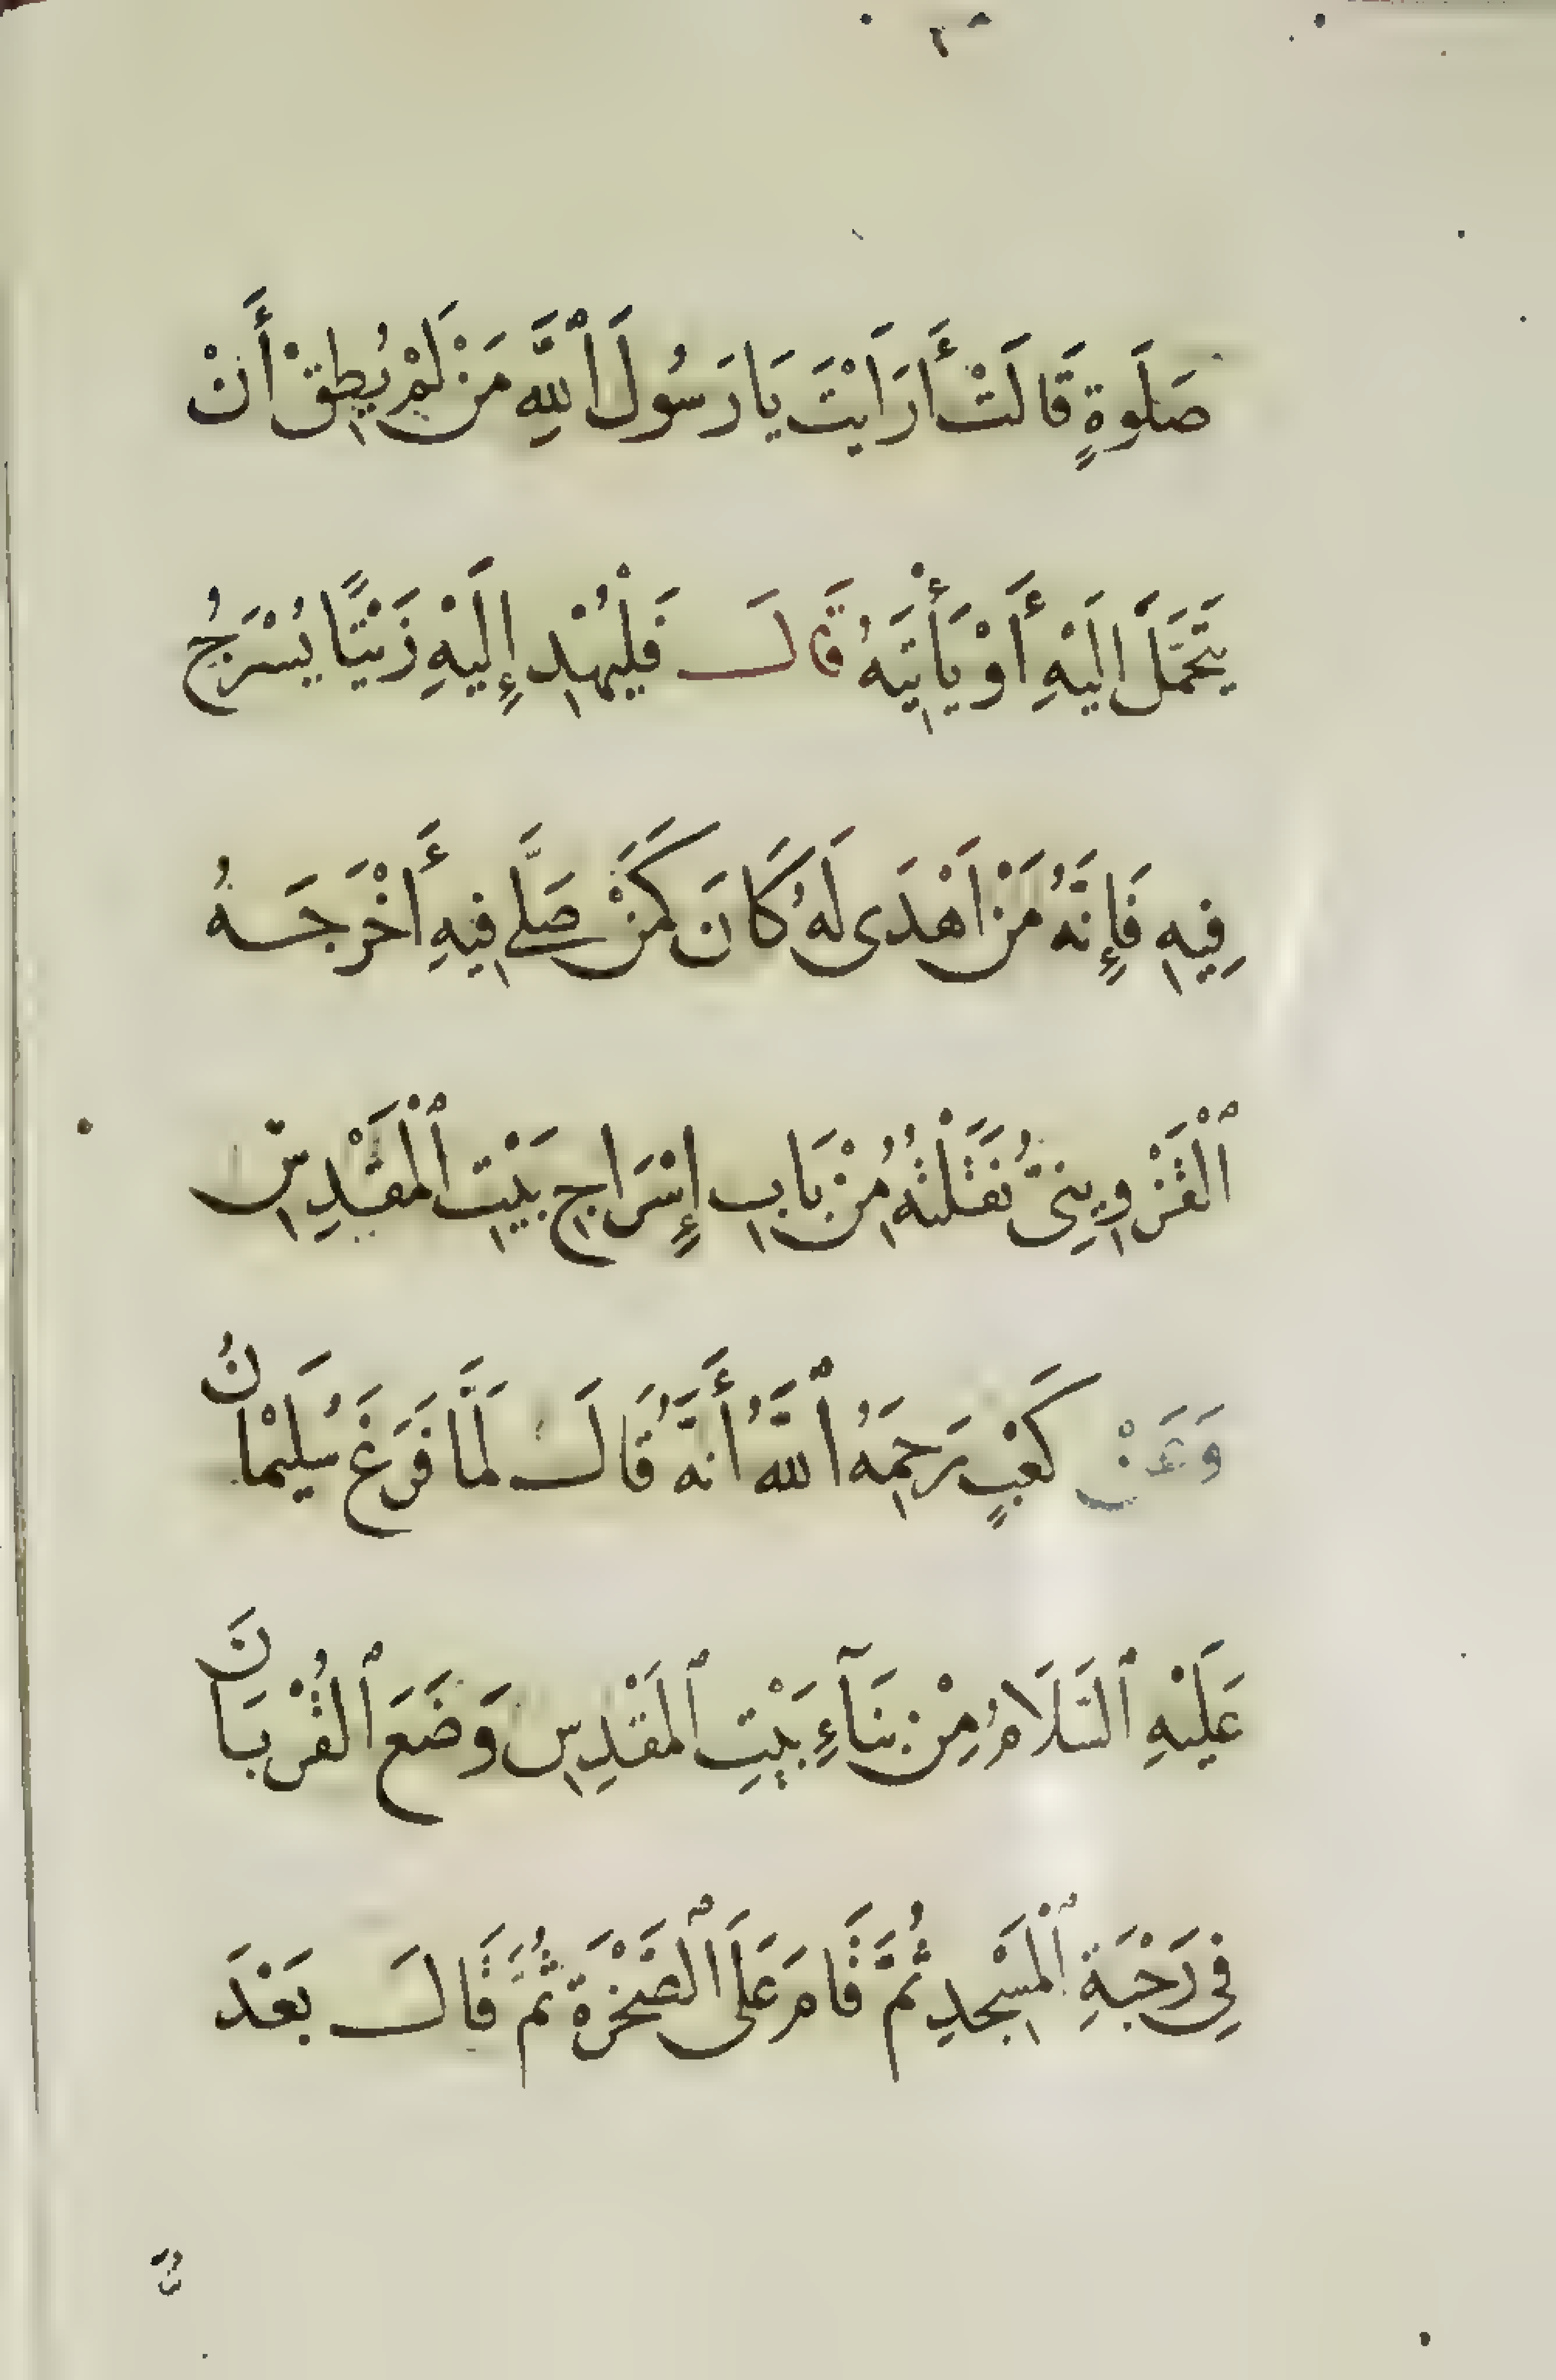 صَلَوةٍ قَالَتْ أَرَاَيْتَ يَا رَسُولَ ٱللَّهِ مَنْ لَمْ يُطِقْ أَنْ
يَتَحَمَّلَ اِلَيْهِ أَوْ يَأْتِيَهُ قَالَ فَلْيُهْدِ إِلَيْهِ زَيْتًا يُسْرَجُ
فِيهِ فَإِنَّهُ مَنْ اَهْدَى لَهُ كَانَ كَمَنْ صَلَّى فِيهِ أَخْرَجَهُ
ٱلْقَزْوِينِىُّ نَقَلْتُهُ مِنْ بَابِ إِسْرَاجِ بَيْتِ ٱلْمَقْدِسِ
وَعَنْ كَعْبٍ رَحِمَهُ ٱللَّهُ أَنَّهُ قَالَ لَمَّا فَرَغَ سُلَيْمَانُ
عَلَيْهِ ٱلسَّلَامُ مِنْ بِنَآءِ بَيْتِ ٱلمَقْدِسِ وَضَعَ ٱلقُرْبَانَ
فِي رَحْبَةِ ٱلْمَسْجِدِ ثُمَّ قَامَ عَلَى ٱلصَّخْرَةِ ثُمَّ قَالَ بَعْدَ